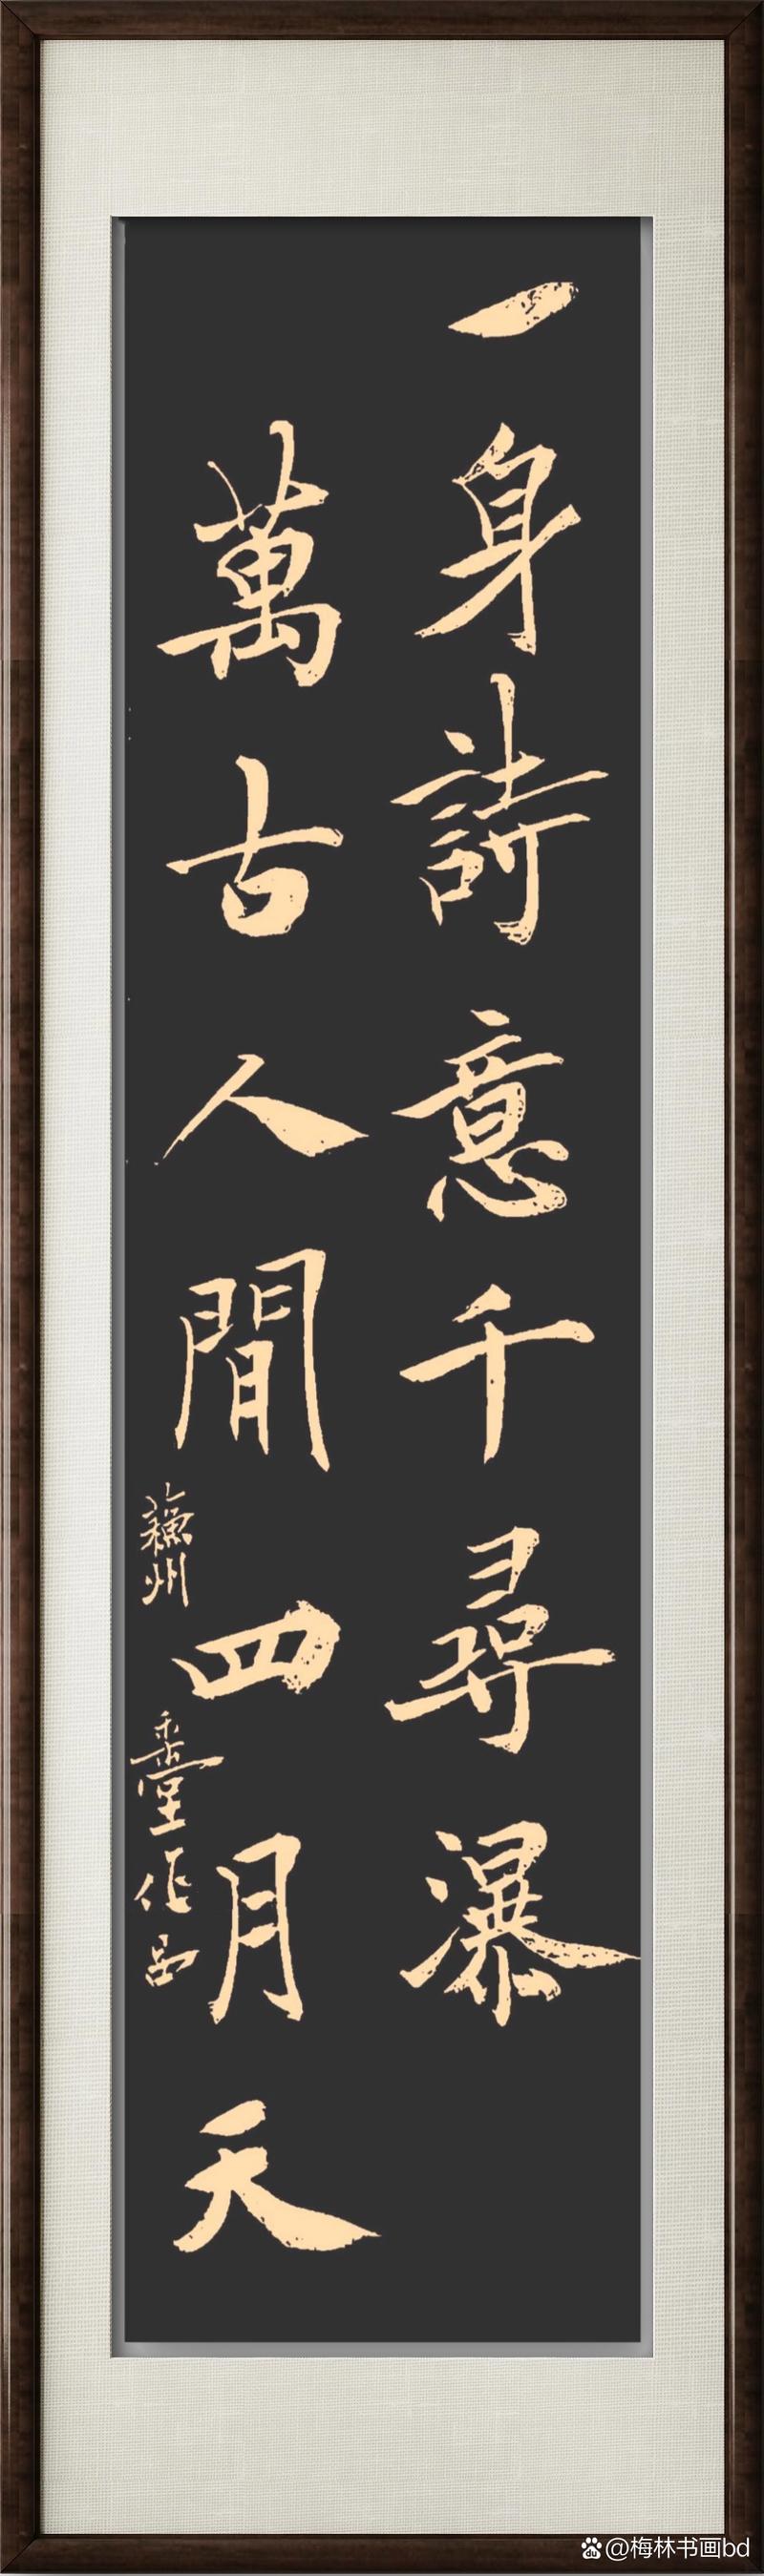 一身詩意千尋瀑
萬古人間四月天
蘓州
垂堂作品
@梅林书画bd